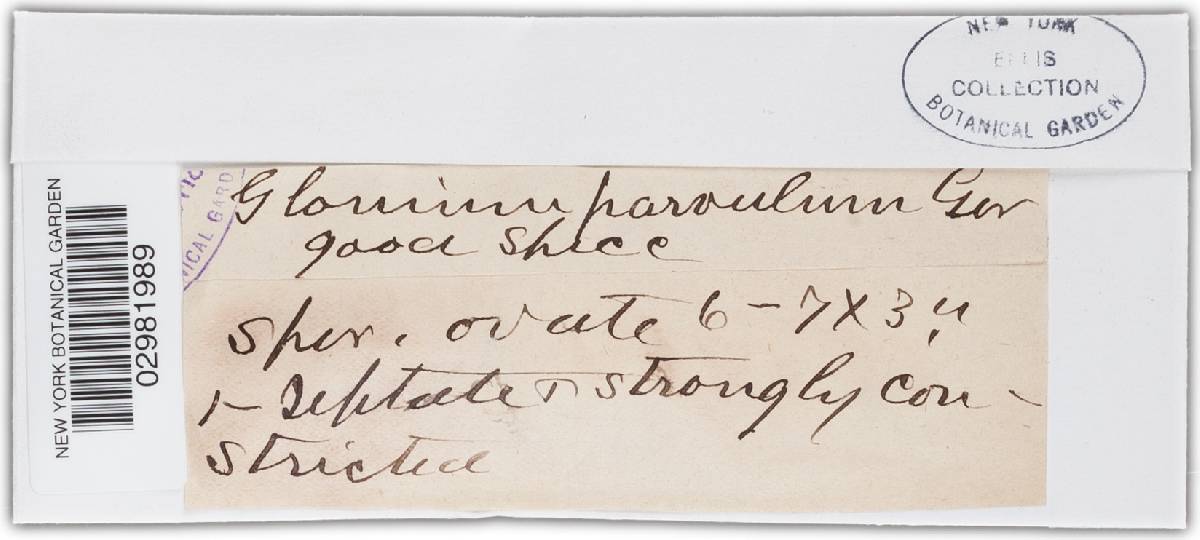 NEW YORK
ELLIS
COLLECTION
BOTANICAL GARDEN
NEW YORK BOTANICAL GARDEN
02981989
ICAL GARD
Glonium parvulum Ger
good spec
spor. ovate 6-7X3 µ
1-septate & strongly con-
stricted